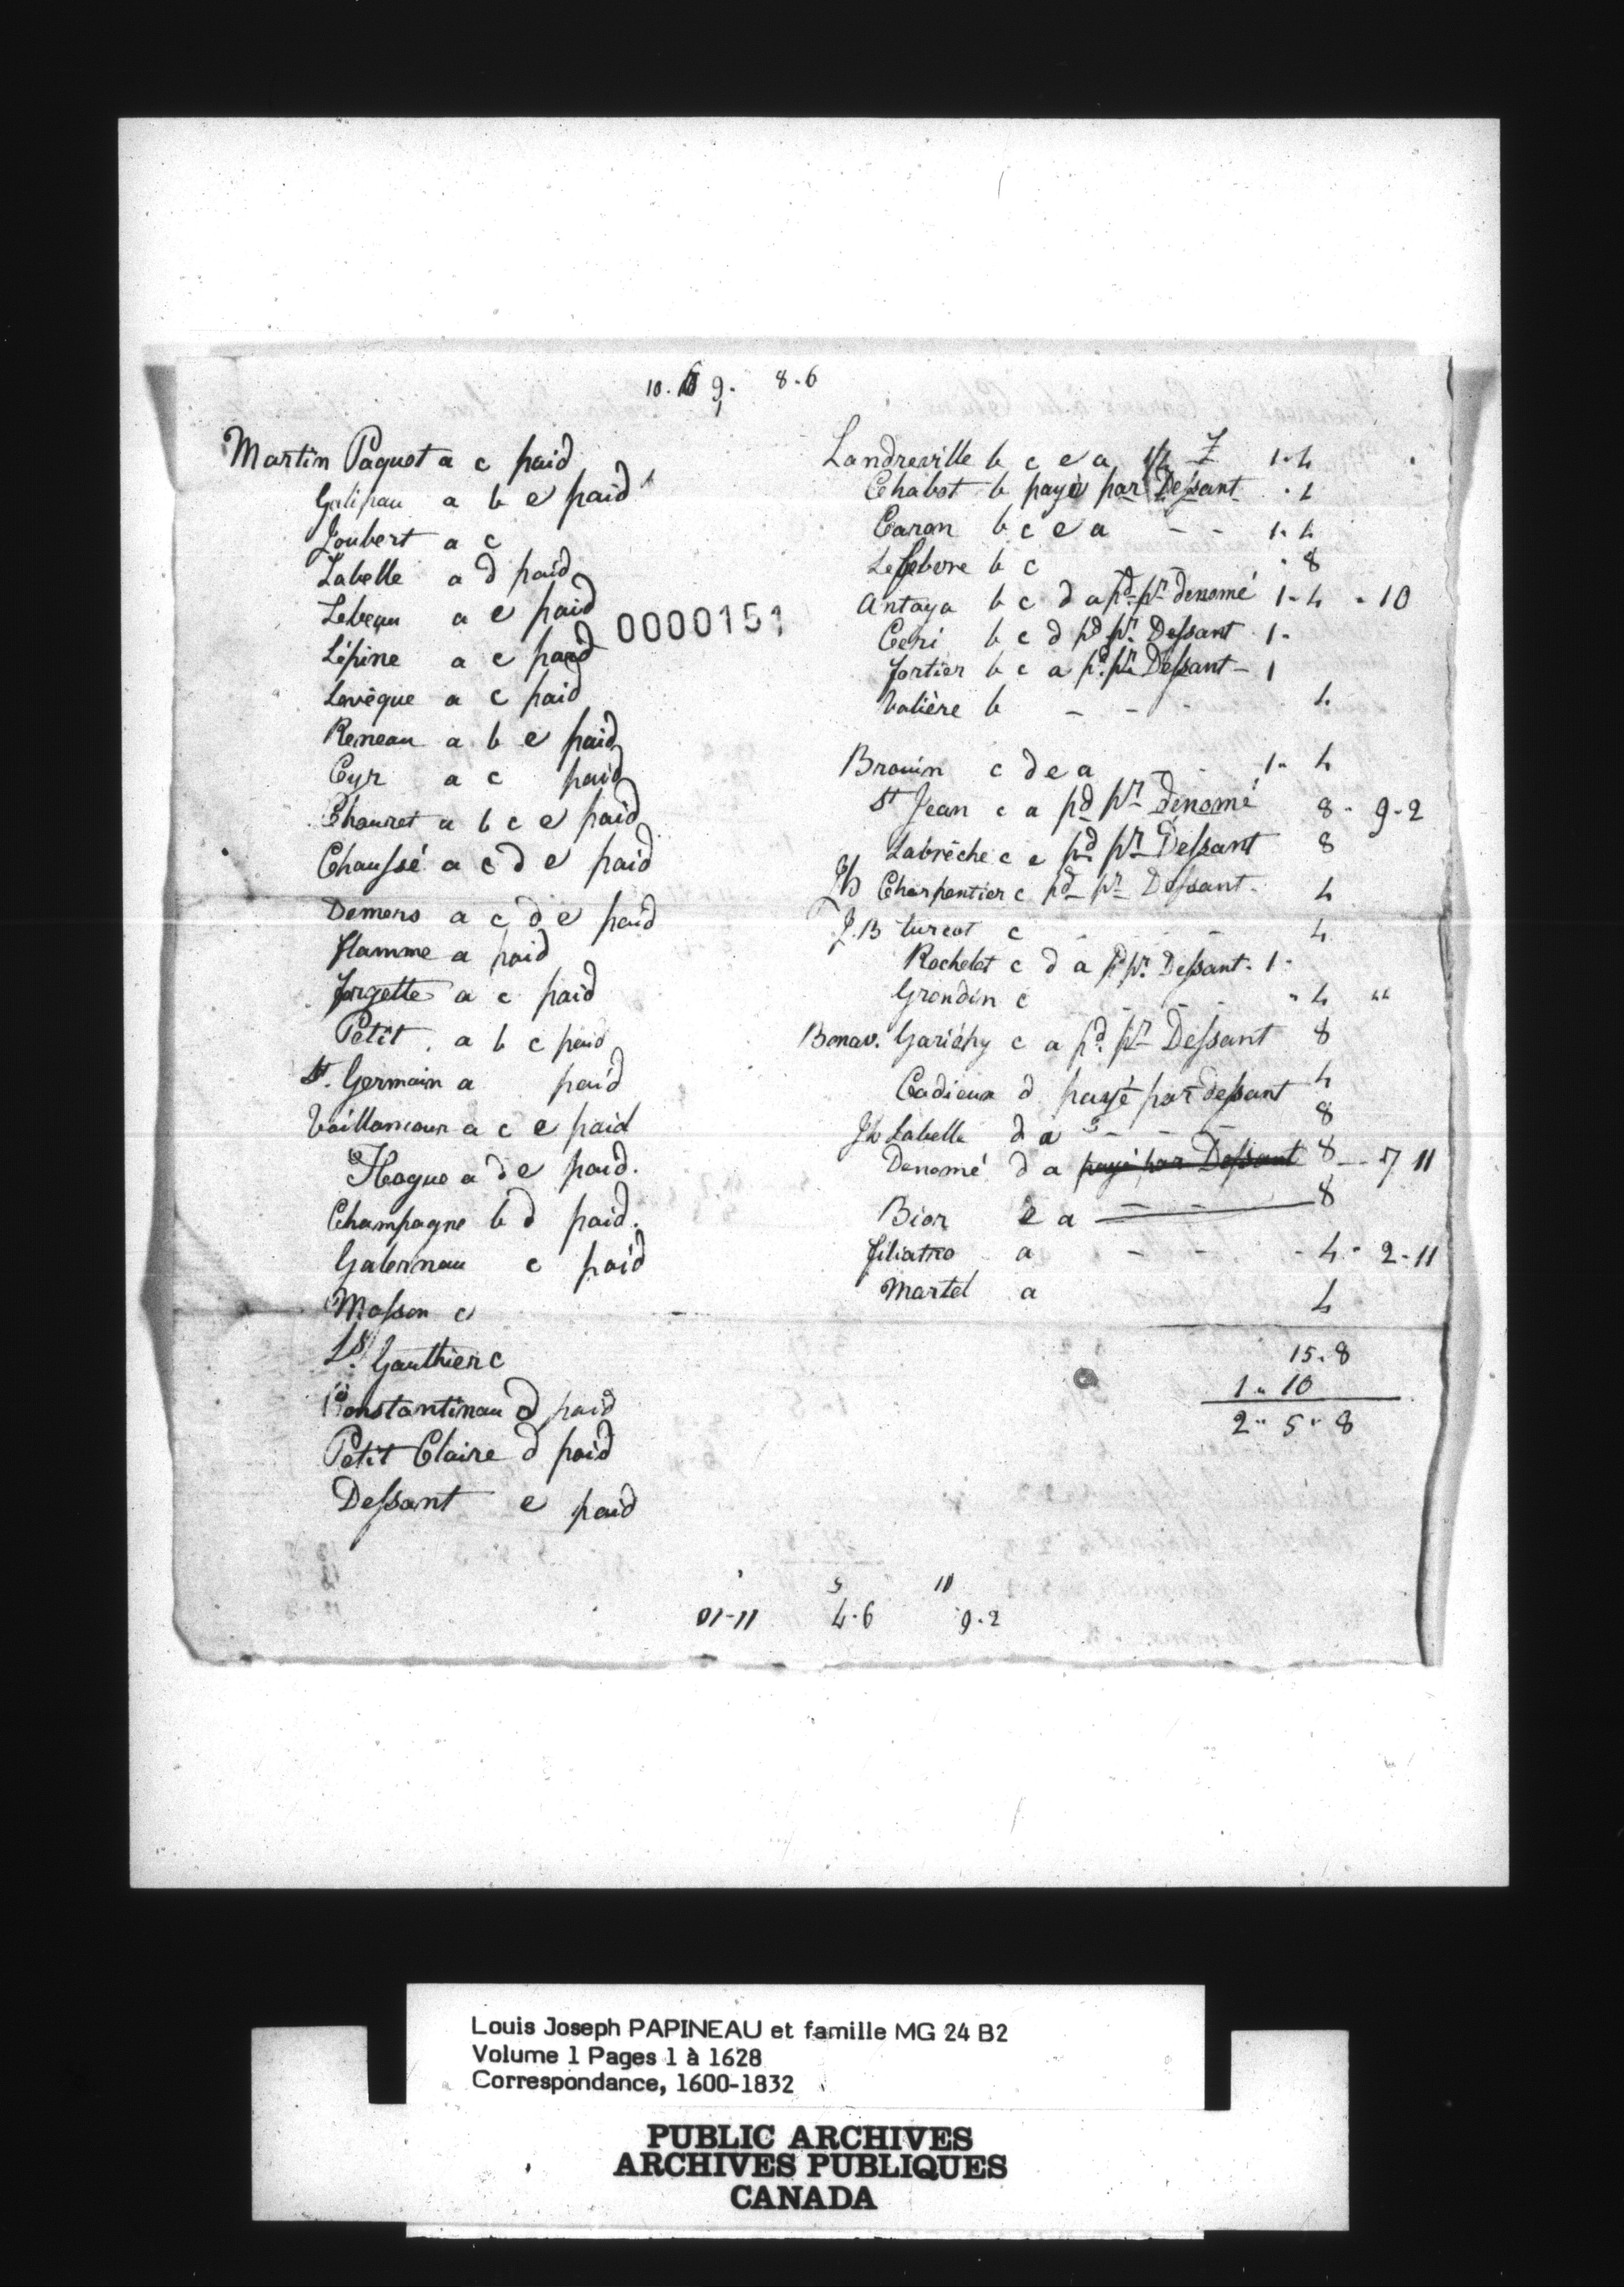 10. 9. 8.6
Martin Paquet a c paid
Galipau a b e paid
Joubert a c
Labelle a d paid
Lebeau a e paid
0000151
Lépine a c paid
Levêque a c paid
Reneau a b e paid
Cyr a c paid
Chouret a b c e paid
Chaussé a c d e paid
Demers a c d e paid
flamme a paid
forgette a c paid
Petit a b c paid
St. Germain a paid
Vaillancour a c e paid
Hogue a d e paid.
Champagne b d paid.
Galernau c paid
Masson c
Ls. Gauthier c
Constantinau d paid
Petit Claire d paid
Dessant e paid
Landreville b c e a 1-4
Chabot b payé par Dessant
Caron b c e a - - 1-4
Lefebvre b c 8
Antaya b c d a pd. pr. denomé 1-4 - 10
Ceri b c d pd pr. Dessant 1-
fortier b c a pd. pr. Dessant - 1
Valière b - - - 4.
Brouin c d e a - - 1- 4
St Jean c a pd pr Dénomé 8 - 9-2
Labrêche c e pd pr Dessant 8
Jh Charpentier c pd pr Dessant. 4
J.B turcot c - - - 4
Rochelet c d a pd pr. Dessant. 1-
Grondin c - - - 4 "
Bonav. Gariépy c a pd. pr Dessant 8
Cadieux d payé par dessant 4
Jh Labelle d a - - - 8
Denomé d a payé par Dessant 8 - 7 11
Bior e a - - 8
filiatro a - - - 4 - 2-11
Martel a 4
15.8
1.. 10
2.. 5.. 8
5 11
01-11 4.6 9.2
Louis Joseph PAPINEAU et famille MG 24 B2
Volume 1 Pages 1 à 1628
Correspondance, 1600-1832
PUBLIC ARCHIVES
ARCHIVES PUBLIQUES
CANADA